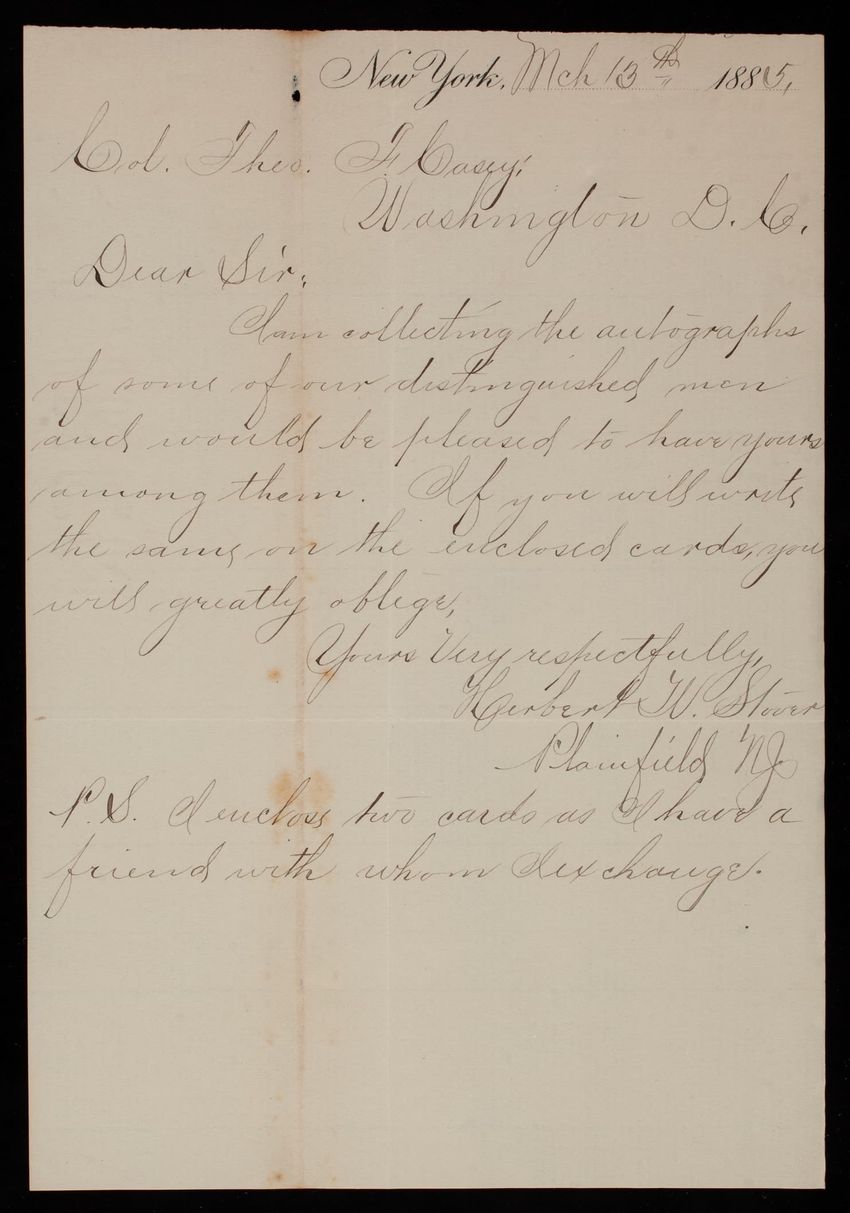 New York, Mch 13th 1885,
Col. Theo. F. Casey,
Washington D. C.
Dear Sir:
I am collecting the autographs
of some of our distinguished men
and would be pleased to have yours
among them. If you will write
the same on the enclosed cards, you
will greatly oblege,
Yours Very respectfully,
Herbert W. Stover
Plainfield NJ
P.S. I enclose two cards as I have a
friend with whom I exchange.